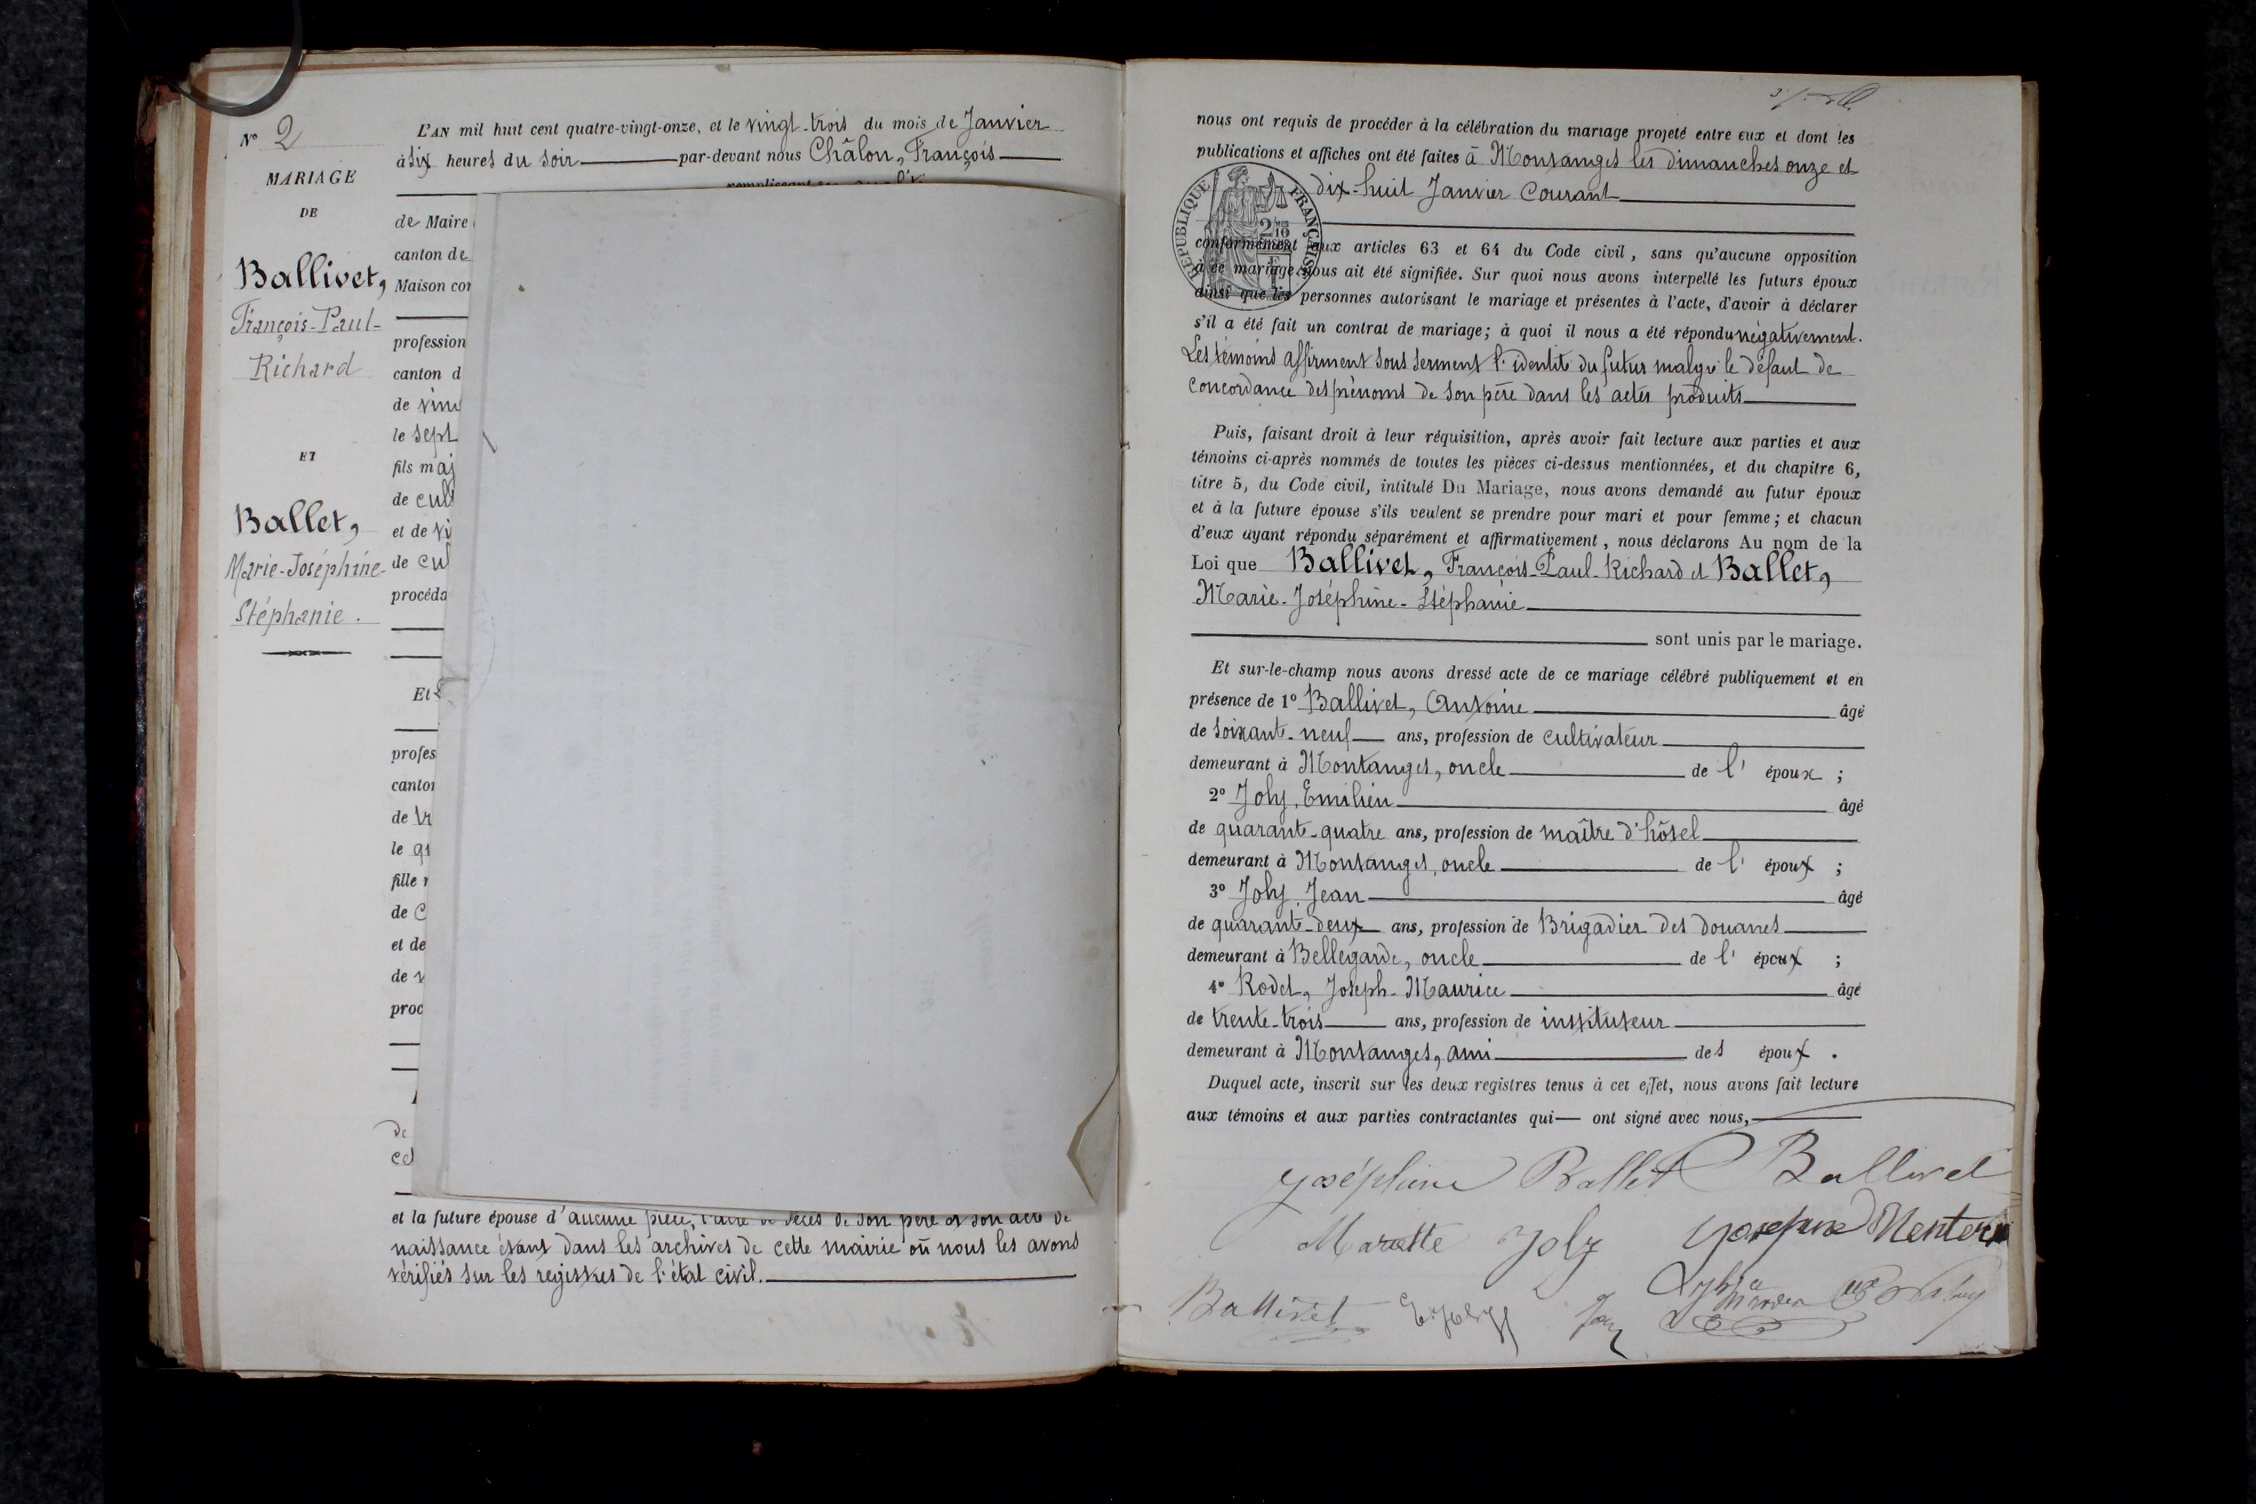 N° 2
MARIAGE
DE
Ballivet,
François-Paul-
Richard
ET
Ballet,
Marie-Joséphine-
Stéphanie.
L'AN mil huit cent quatre-vingt-onze, et le vingt-trois du mois de Janvier
à six heures du soir par-devant nous Châlon, François
de Maire
canton de
Maison
profession
canton d
de
le sept
fils maj
de cult
et de
de cul
procéda
Et
profes
canton
de
le
fille
de
et de
de
proc
de
et la future épouse d'aucune pièce, l'acte de décès de son père et son acte de
naissance étant dans les archives de cette mairie où nous les avons
vérifiés sur les registres de l'état civil.
nous ont requis de procéder à la célébration du mariage projeté entre eux et dont les
publications et affiches ont été faites à Montanges les dimanches onze et
dix-huit Janvier courant
RÉPUBLIQUE FRANÇAISE
conformément aux articles 63 et 64 du Code civil, sans qu'aucune opposition
à ce mariage nous ait été signifiée. Sur quoi nous avons interpellé les futurs époux
ainsi que les personnes autorisant le mariage et présentes à l'acte, d'avoir à déclarer
s'il a été fait un contrat de mariage; à quoi il nous a été répondu négativement.
Les témoins affirment sous serment l'identité du futur malgré le défaut de
concordance des prénoms de son père dans les actes produits
Puis, faisant droit à leur réquisition, après avoir fait lecture aux parties et aux
témoins ci-après nommés de toutes les pièces ci-dessus mentionnées, et du chapitre 6,
titre 5, du Code civil, intitulé Du Mariage, nous avons demandé au futur époux
et à la future épouse s'ils veulent se prendre pour mari et pour femme; et chacun
d'eux ayant répondu séparément et affirmativement, nous déclarons Au nom de la
Loi que Ballivet, François-Paul-Richard et Ballet,
Marie-Joséphine-Stéphanie
sont unis par le mariage.
Et sur-le-champ nous avons dressé acte de ce mariage célébré publiquement et en
présence de 1° Ballivet, Antoine âgé
de soixante-neuf ans, profession de cultivateur
demeurant à Montanges, oncle de l' époux ;
2° Joly, Emilien âgé
de quarante-quatre ans, profession de maître d'hôtel
demeurant à Montanges, oncle de l' époux ;
3° Joly, Jean âgé
de quarante-deux ans, profession de Brigadier des douanes
demeurant à Bellegarde, oncle de l' époux ;
4° Rodet, Joseph-Maurice âgé
de trente-trois ans, profession de instituteur
demeurant à Montanges, ami des époux .
Duquel acte, inscrit sur les deux registres tenus à cet effet, nous avons fait lecture
aux témoins et aux parties contractantes qui ont signé avec nous,
Joséphine Ballet Ballivet
Joly
Ballivet